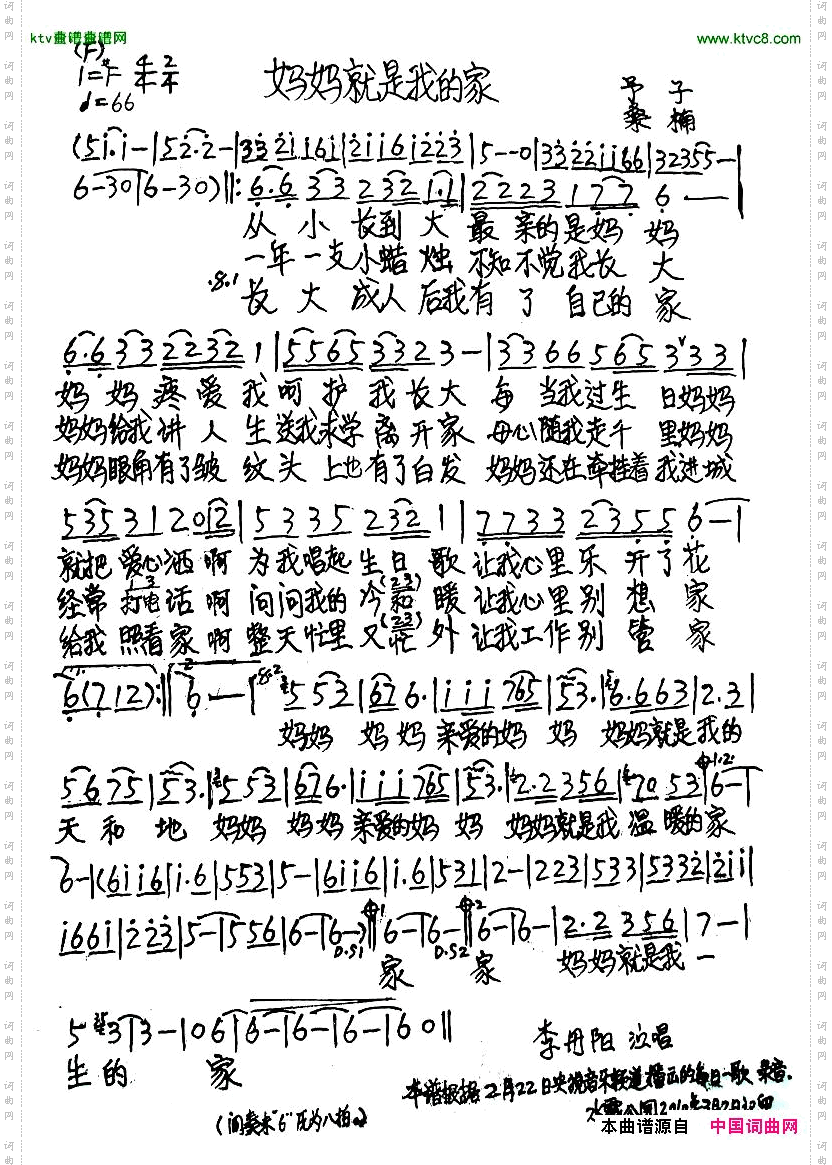 ktv曲谱曲谱网
www.ktvc8.com
(F)
1=#F 4/4 2/4
♩=66
妈妈就是我的家
予子
桑楠
(5 i· i - | 5 2· 2 - | 3 3 2 i i 6 i | 2 i i 6 i 2 2 3 | 5 - - 0 | 3 3 2 2 i i 6 6 | 3 2 3 5 5 - |
6 - 3 0 | 6 - 3 0) ‖: 6· 6 3 3 2 3 2 1· 1 | 2 2 2 3 1 7 7 6 - |
从小长到大最亲的是妈妈
一年一支小蜡烛不知不觉我长大
长大成人后我有了自己的家
6· 6 3 3 2 2 3 2 1 | 5 5 6 5 3 3 2 3 - | 3 3 6 6 5 6 5 3 3 3 |
妈妈疼爱我呵护我长大每当我过生日妈妈
妈妈给我讲人生送我求学离开家母心随我走千里妈妈
妈妈眼角有了皱纹头上也有了白发妈妈还在牵挂着我进城
5 3 5 3 1 2 0 1 2 | 5 3 3 5 2 3 2 1 | 7 7 3 3 2 3 5 5 6 - |
就把爱心洒啊为我唱起生日歌让我心里乐开了花
经常打电话啊问问我的冷和暖让我心里别想家
给我照看家啊整天忙里又忙外让我工作别管家
6 (7 1 2) :‖ 6 - | 5 5 3 | 6 7 6· | i i i 7 6 5 | 5 3· | 6· 6 6 3 | 2· 3 |
妈妈妈妈亲爱的妈妈妈妈就是我的
5 6 7 5 | 5 3· | 5 5 3 | 6 7 6· | i i i 7 6 5 | 5 3· | 2· 2 3 5 6 | 7 0 5 3 | 6 - |
天和地妈妈妈妈亲爱的妈妈妈妈就是我温暖的家
6 - | (6 i i 6 | i· 6 | 5 5 3 | 5 - | 6 i i 6 | i· 6 | 5 3 1 | 2 - | 2 2 3 | 5 3 3 | 5 3 3 2 | 2 i i |
i 6 6 i | 2 2 3 | 5 - | 5 5 6 | 6 - | 6 -) ‖ 6 - | 6 - ‖ 6 - | 6 - | 2· 2 3 5 6 | 7 - |
D.S1 D.S2
家家妈妈就是我一
5 3 | 3 - | 0 6 | 6 - | 6 - | 6 - | 6 0 ‖
生的家
李丹阳演唱
本谱根据2月22日央视音乐频道播出的每日一歌录音.
(间奏末"6"应为八拍。)
本曲谱源自 中国词曲网
词曲网